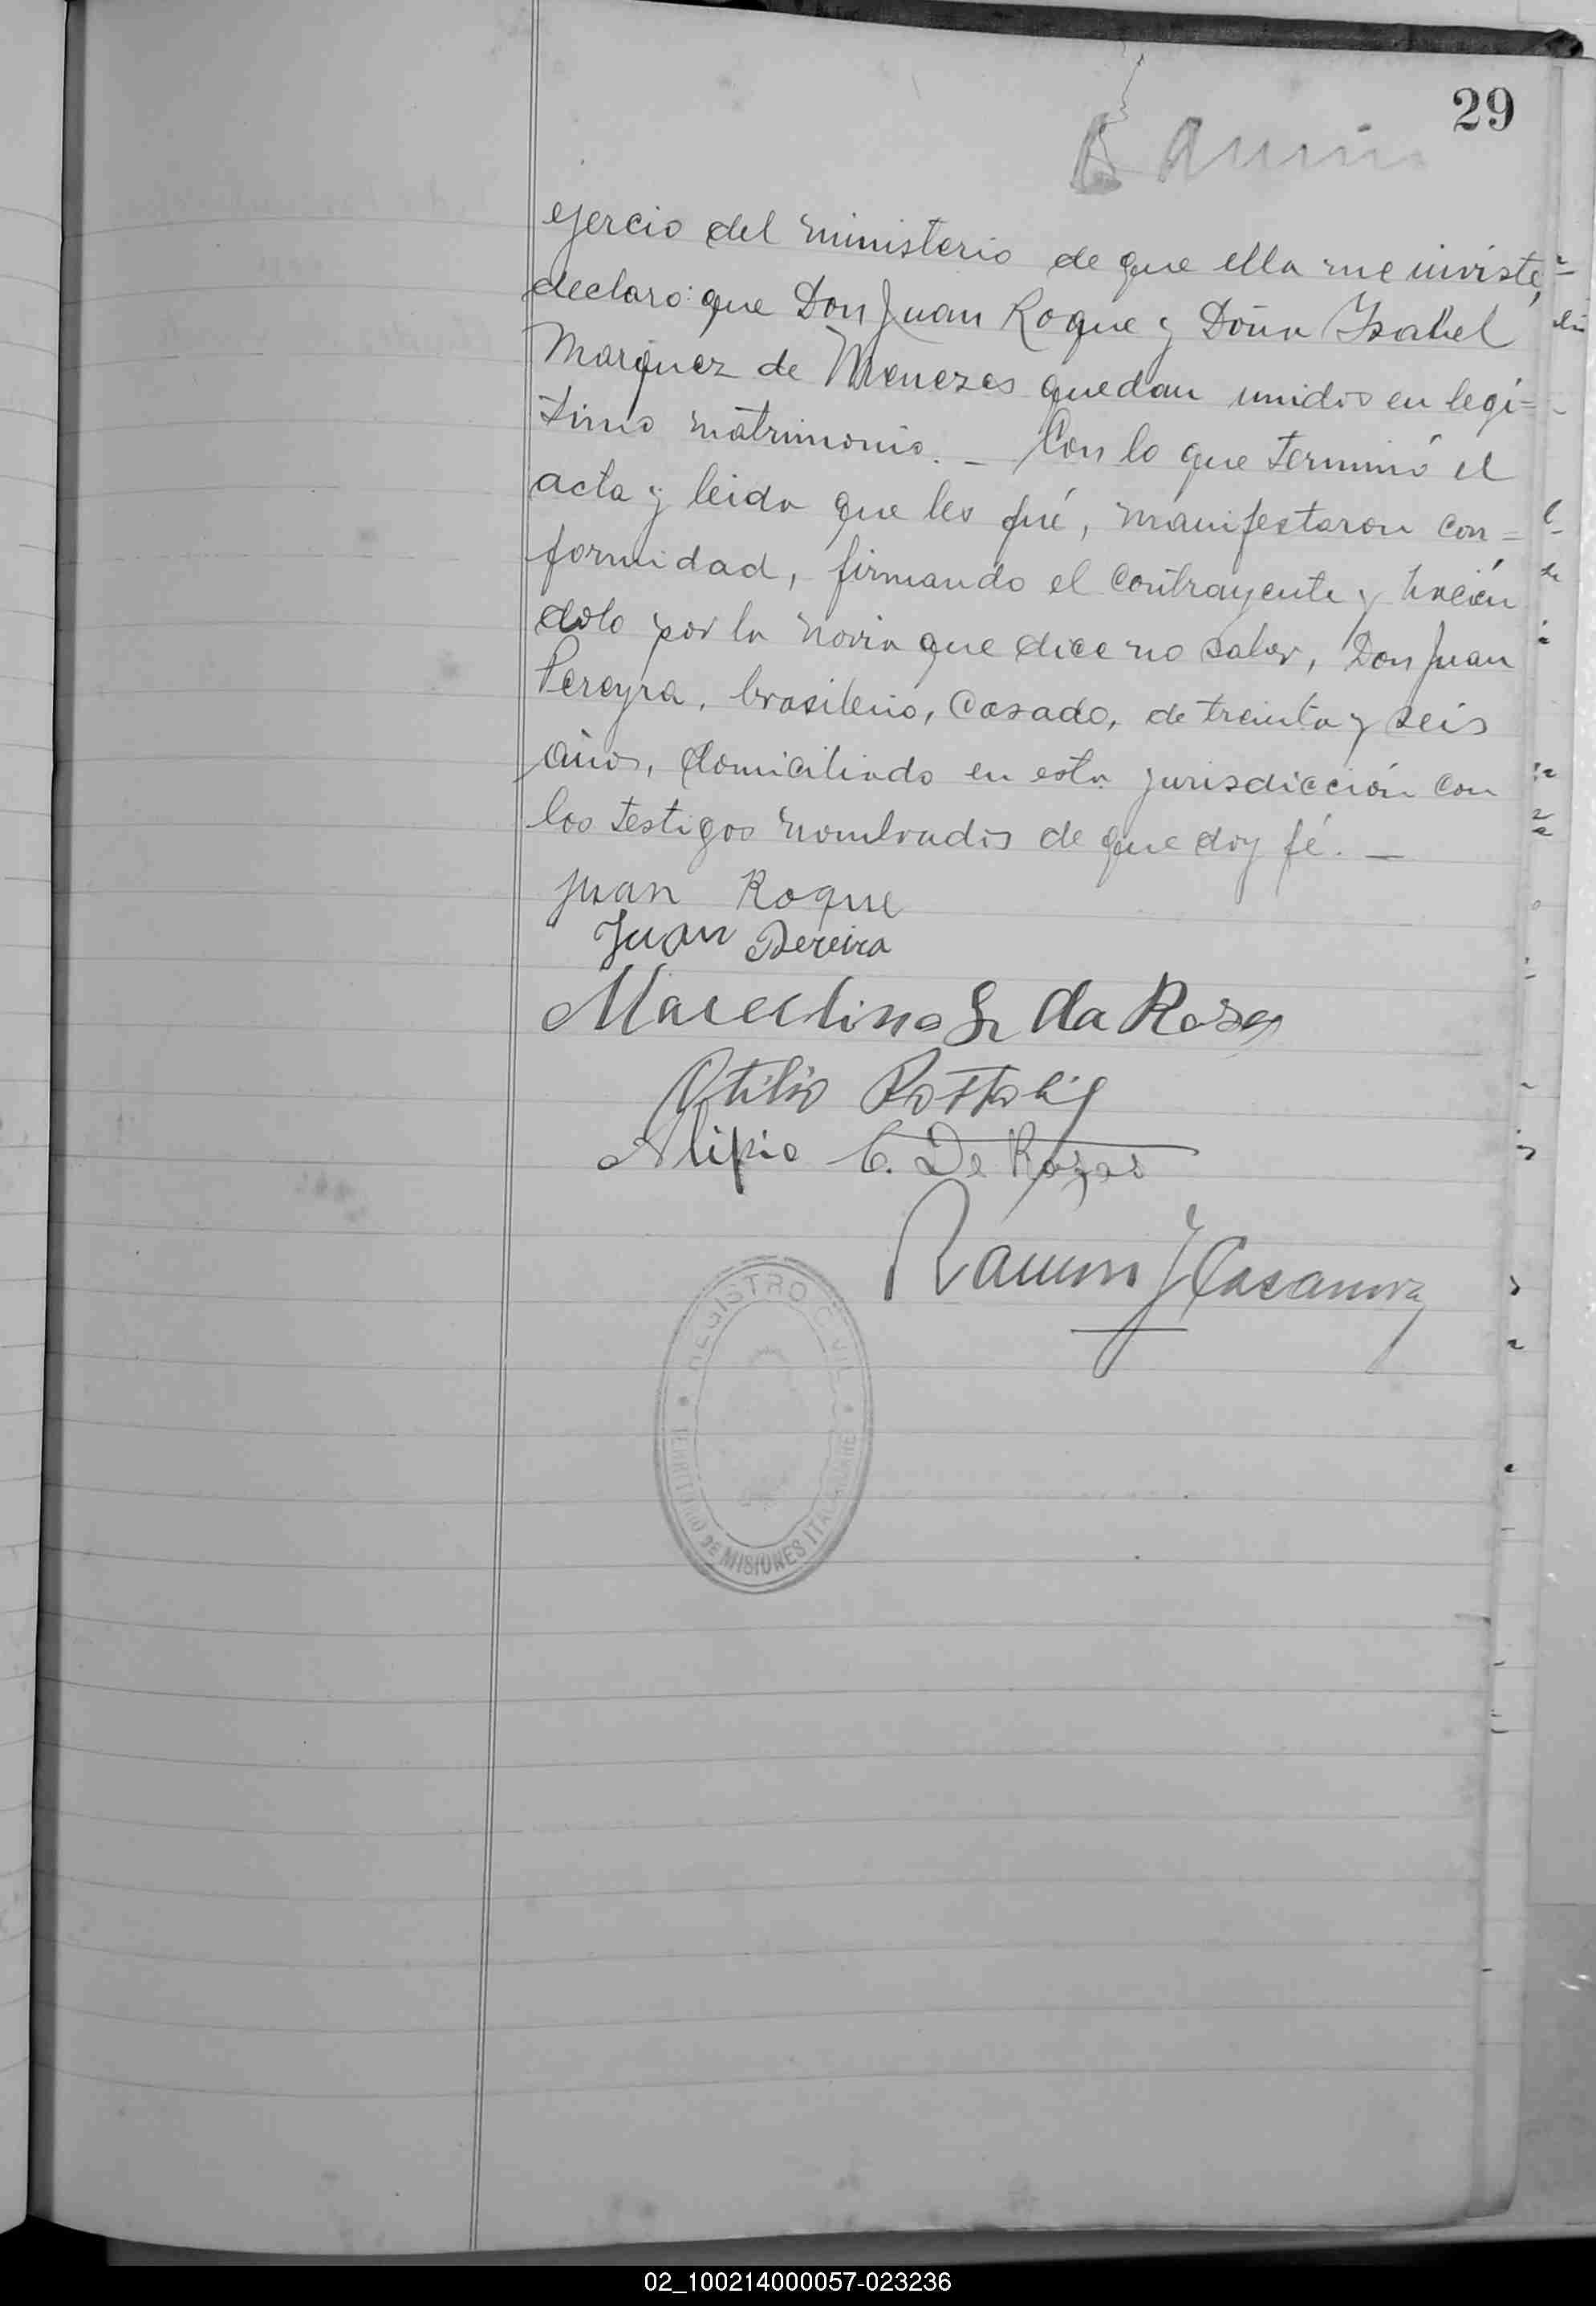 29
ejercio del ministerio de que ella me inviste,
declaro: que Don Juan Roque y Doña Isabel
Marquez de Menezes quedan unidos en legi=
timo matrimonio. — Con lo que terminó el
acta y leida que les fué, manifestaron con=
formidad, firmando el contrayente y hacién
dolo por la novia que dice no saber, Don Juan
Pereyra, brasileño, casado, de treinta y seis
años, domiciliado en esta jurisdicción con
los testigos nombrados de que doy fé. —
Juan Roque
Juan Pereira
Marcelino da Rosa
Otilio
Alipio C. De Rozas
Ramon J Casanova
REGISTRO CIVIL
TERRITORIO DE MISIONES ITACARUARE
02_100214000057-023236